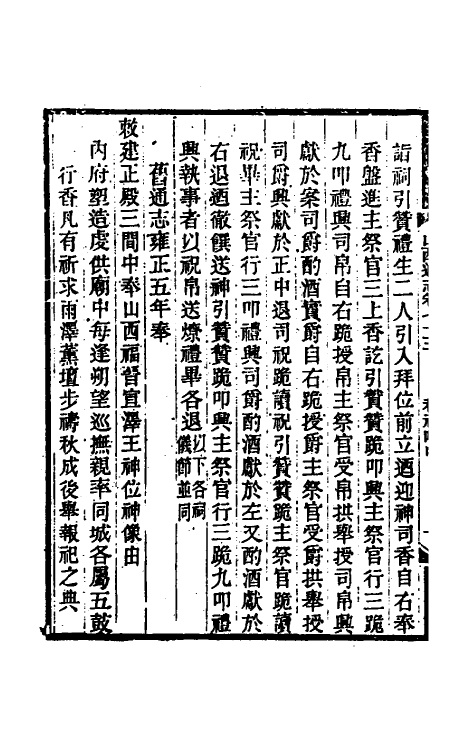 詣祠引贊禮生二人引入拜位前立迺迎神司香自右奉
香盤進主祭官三上香訖引贊贊跪叩興主祭官行三跪
九叩禮興司帛自右跪授帛主祭官受帛拱舉授司帛興
獻於案司爵酌酒實爵自右跪授爵主祭官受爵拱舉授
司爵興獻於正中退司祝跪讀祝引贊贊跪主祭官跪讀
祝畢主祭官行三叩禮興司爵酌酒獻於左又酌酒獻於
右退迺徹饌送神引贊贊跪叩興主祭官行三跪九叩禮
興執事者以祝帛送燎禮畢各退以下各祠儀節並同
舊通志雍正五年奉
敕建正殿三間中奉山西福晉宣澤王神位神像由
內府塑造虔供廟中每逢朔望巡撫親率同城各屬五鼓
行香凡有祈求雨澤薰壇步禱秋成後舉報祀之典